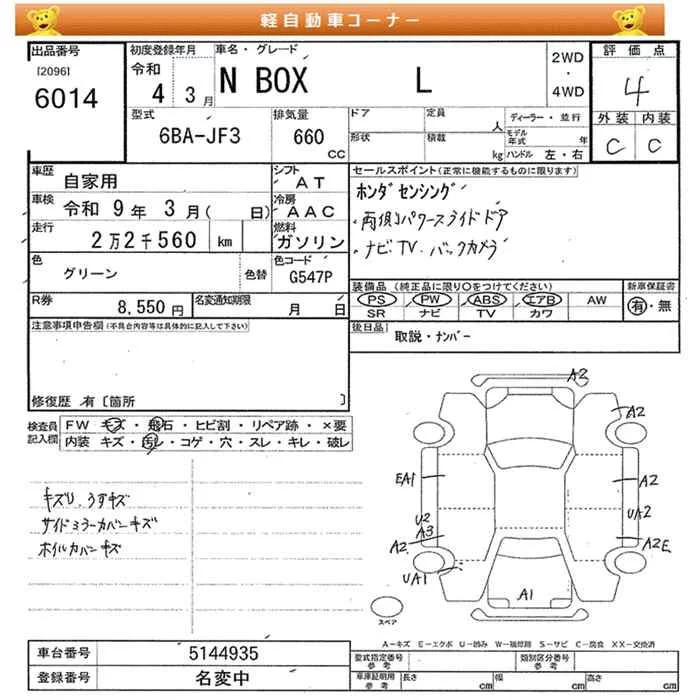 軽自動車コーナー
出品番号
[2096]
6014
初度登録年月
令和
4 3月
車名・グレード
N BOX L
2WD
・
4WD
評価点
4
外装 内装
C C
型式
6BA-JF3
排気量
660
cc
ドア
形状
定員
人
積載
kg
ディーラー・並行
モデル
年式 年
ハンドル 左・右
車歴
自家用
シフト
AT
車検 令和 9年 3月( 日)
冷房
AAC
走行
2万2千560 km
燃料
ガソリン
色
グリーン
色替
色コード
G547P
R券
8,550円
名変通知期限
月 日
セールスポイント(正常に機能するものに限ります)
ホンダセンシング
・両側パワースライドドア
・ナビTV・バックカメラ
装備品 (純正品に限り○をつけてください)
PS PW ABS エアB AW
SR ナビ TV カワ
新車保証書
有・無
後日品
取説・ナンバー
注意事項申告欄(不具合内容等は具体的に記入して下さい)
修復歴 有〔箇所 〕
検査員
記入欄
FW キズ・飛石・ヒビ割・リペア跡・×要
内装 キズ・汚レ・コゲ・穴・スレ・キレ・破レ
キズリ、うすキズ
サイドミラーカバーキズ
ホイルカバーキズ
A2
A2
EA1
A2
U2
A3
UA2
A2
A2E
UA1
A1
スペア
A-キズ E-エクボ U-凹み W-補修跡 S-サビ C-腐食 XX-交換済
車台番号
5144935
登録番号
名変中
型式指定番号
参考
類別区分番号
参考
車庫証明用
参考
長さ cm
幅 cm
高さ cm